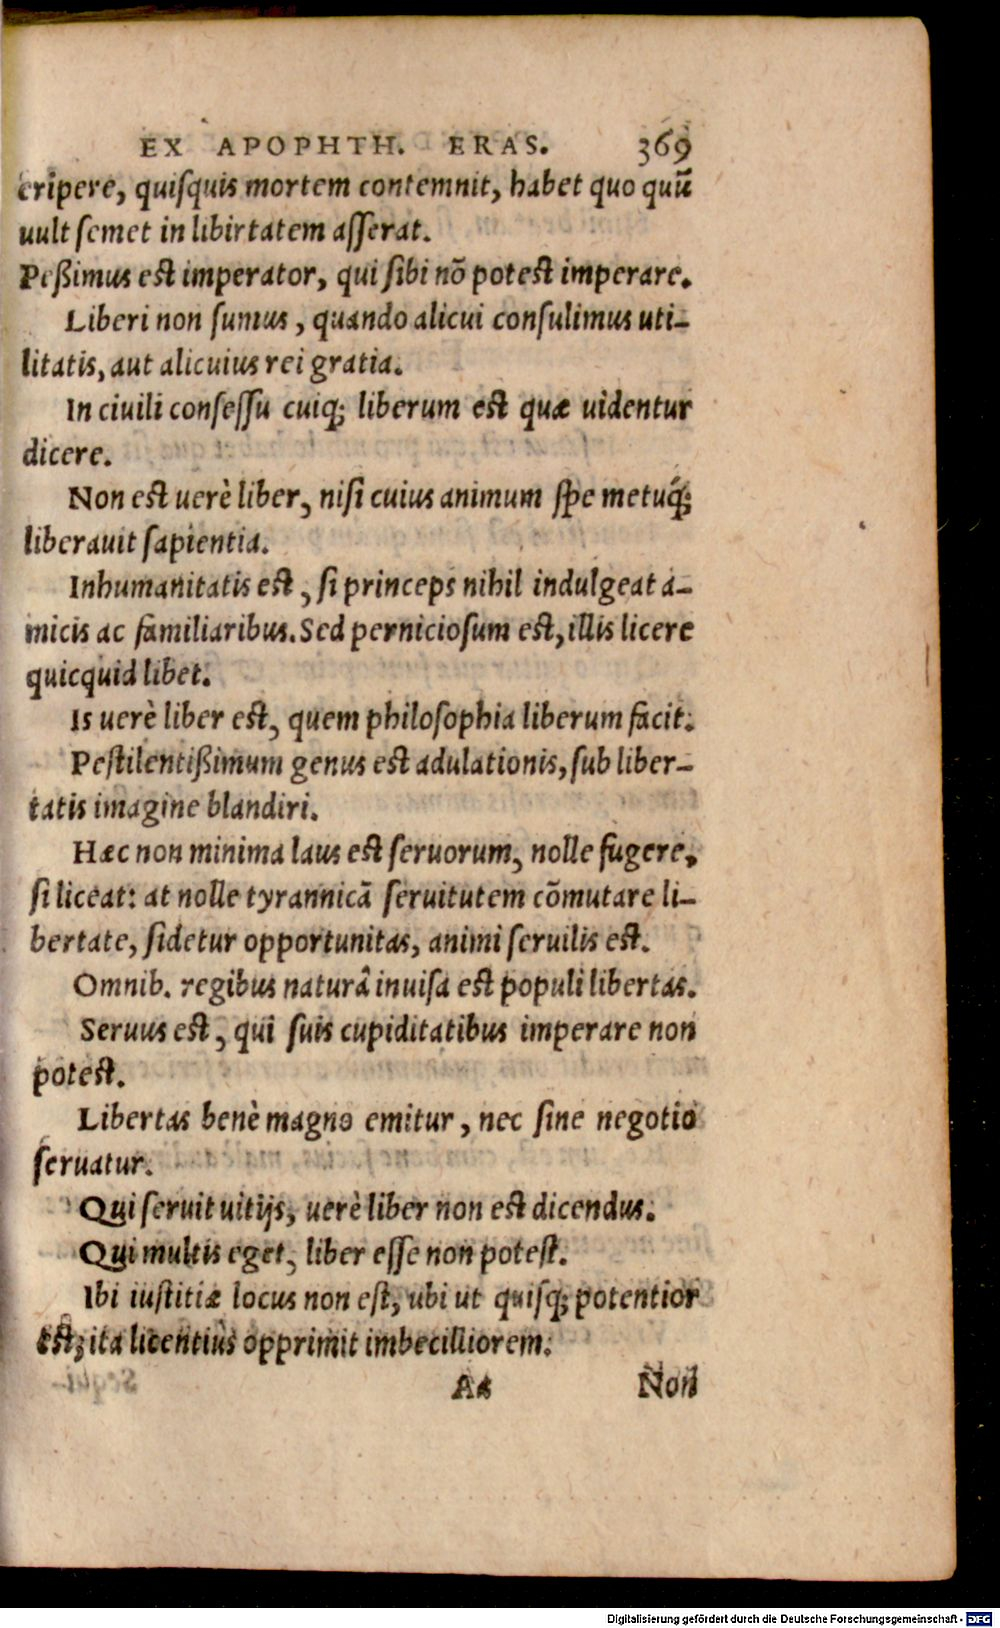 EX APOPHTH. ERAS. 369
eripere, quiſquis mortem contemnit, habet quo quũ
uult ſemet in libirtatem aſſerat.
Peßimus est imperator, qui ſibi nõ potest imperare.
Liberi non ſumus, quando alicui conſulimus uti-
litatis, aut alicuius rei gratia.
In ciuili conſeſſu cuiq; liberum est quæ uidentur
dicere.
Non est uerè liber, niſi cuius animum ſpe metuq́;
liberauit ſapientia.
Inhumanitatis est, ſi princeps nihil indulgeat a-
micis ac familiaribus. Sed pernicioſum est, illis licere
quicquid libet.
Is uerè liber est, quem philoſophia liberum facit.
Peſtilentißimum genus est adulationis, ſub liber-
tatis imagine blandiri.
Hæc non minima laus est ſeruorum, nolle fugere,
ſi liceat: at nolle tyrannicã ſeruitutem cõmutare li-
bertate, ſi detur opportunitas, animi ſeruilis est.
Omnib. regibus naturâ inuiſa est populi libertas.
Seruus est, qui ſuis cupiditatibus imperare non
potest.
Libertas benè magno emitur, nec ſine negotio
ſeruatur.
Qui ſeruit uitijs, uerè liber non est dicendus.
Qui multis eget, liber eſſe non poteſt.
Ibi iuſtitiæ locus non eſt, ubi ut quiſq; potentior
est, ita licentiùs opprimit imbecilliorem.
Aa Non
Digitalisierung gefördert durch die Deutsche Forschungsgemeinschaft - DFG